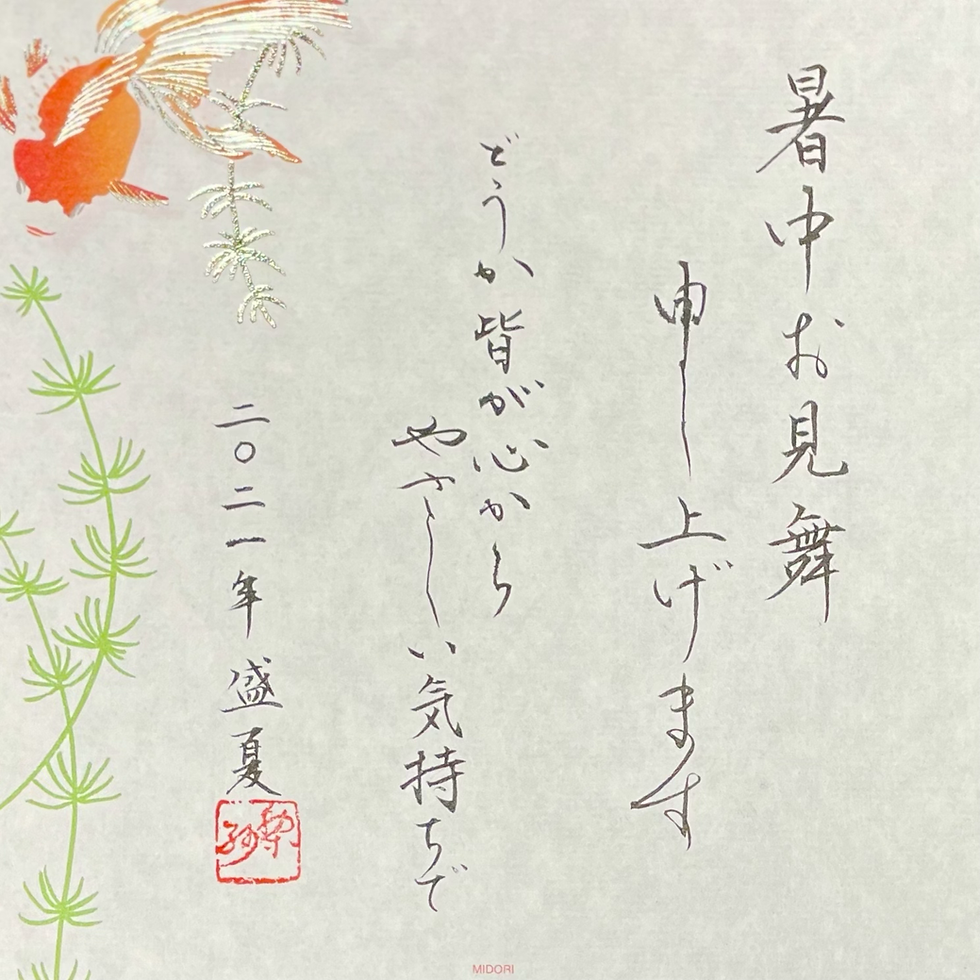 暑中お見舞
申し上げます
どうか皆が心から
やさしい気持ちで
二〇二一年 盛夏
MIDORI